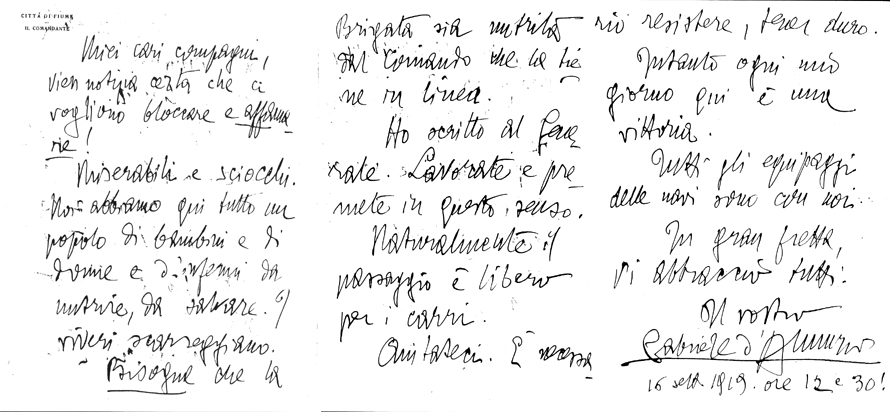 CITTÀ DI FIUME
IL COMANDANTE
Miei cari compagni,
vien notizia certa che ci
vogliono bloccare e affama-
re!
Miserabili e sciocchi.
Noi abbiamo qui tutto un
popolo di bambini e di
donne e d'infermi da
nutrire, da salvare. I
viveri scarseggiano.
Bisogna che la
Brigata sia nutrita
dal Comando che la tie-
ne in linea.
Ho scritto al Gene-
rale. Lavorate e pre-
mete in questo senso.
Naturalmente il
passaggio è libero
per i carri.
Aiutateci. È necessa-
rio resistere, tener duro.
Intanto ogni mio
giorno qui è una
vittoria.
Tutti gli equipaggi
delle navi sono con noi.
In gran fretta,
vi abbraccio tutti.
Il vostro
Gabriele d'Annunzio
16 sett. 1919. ore 12 e 30!